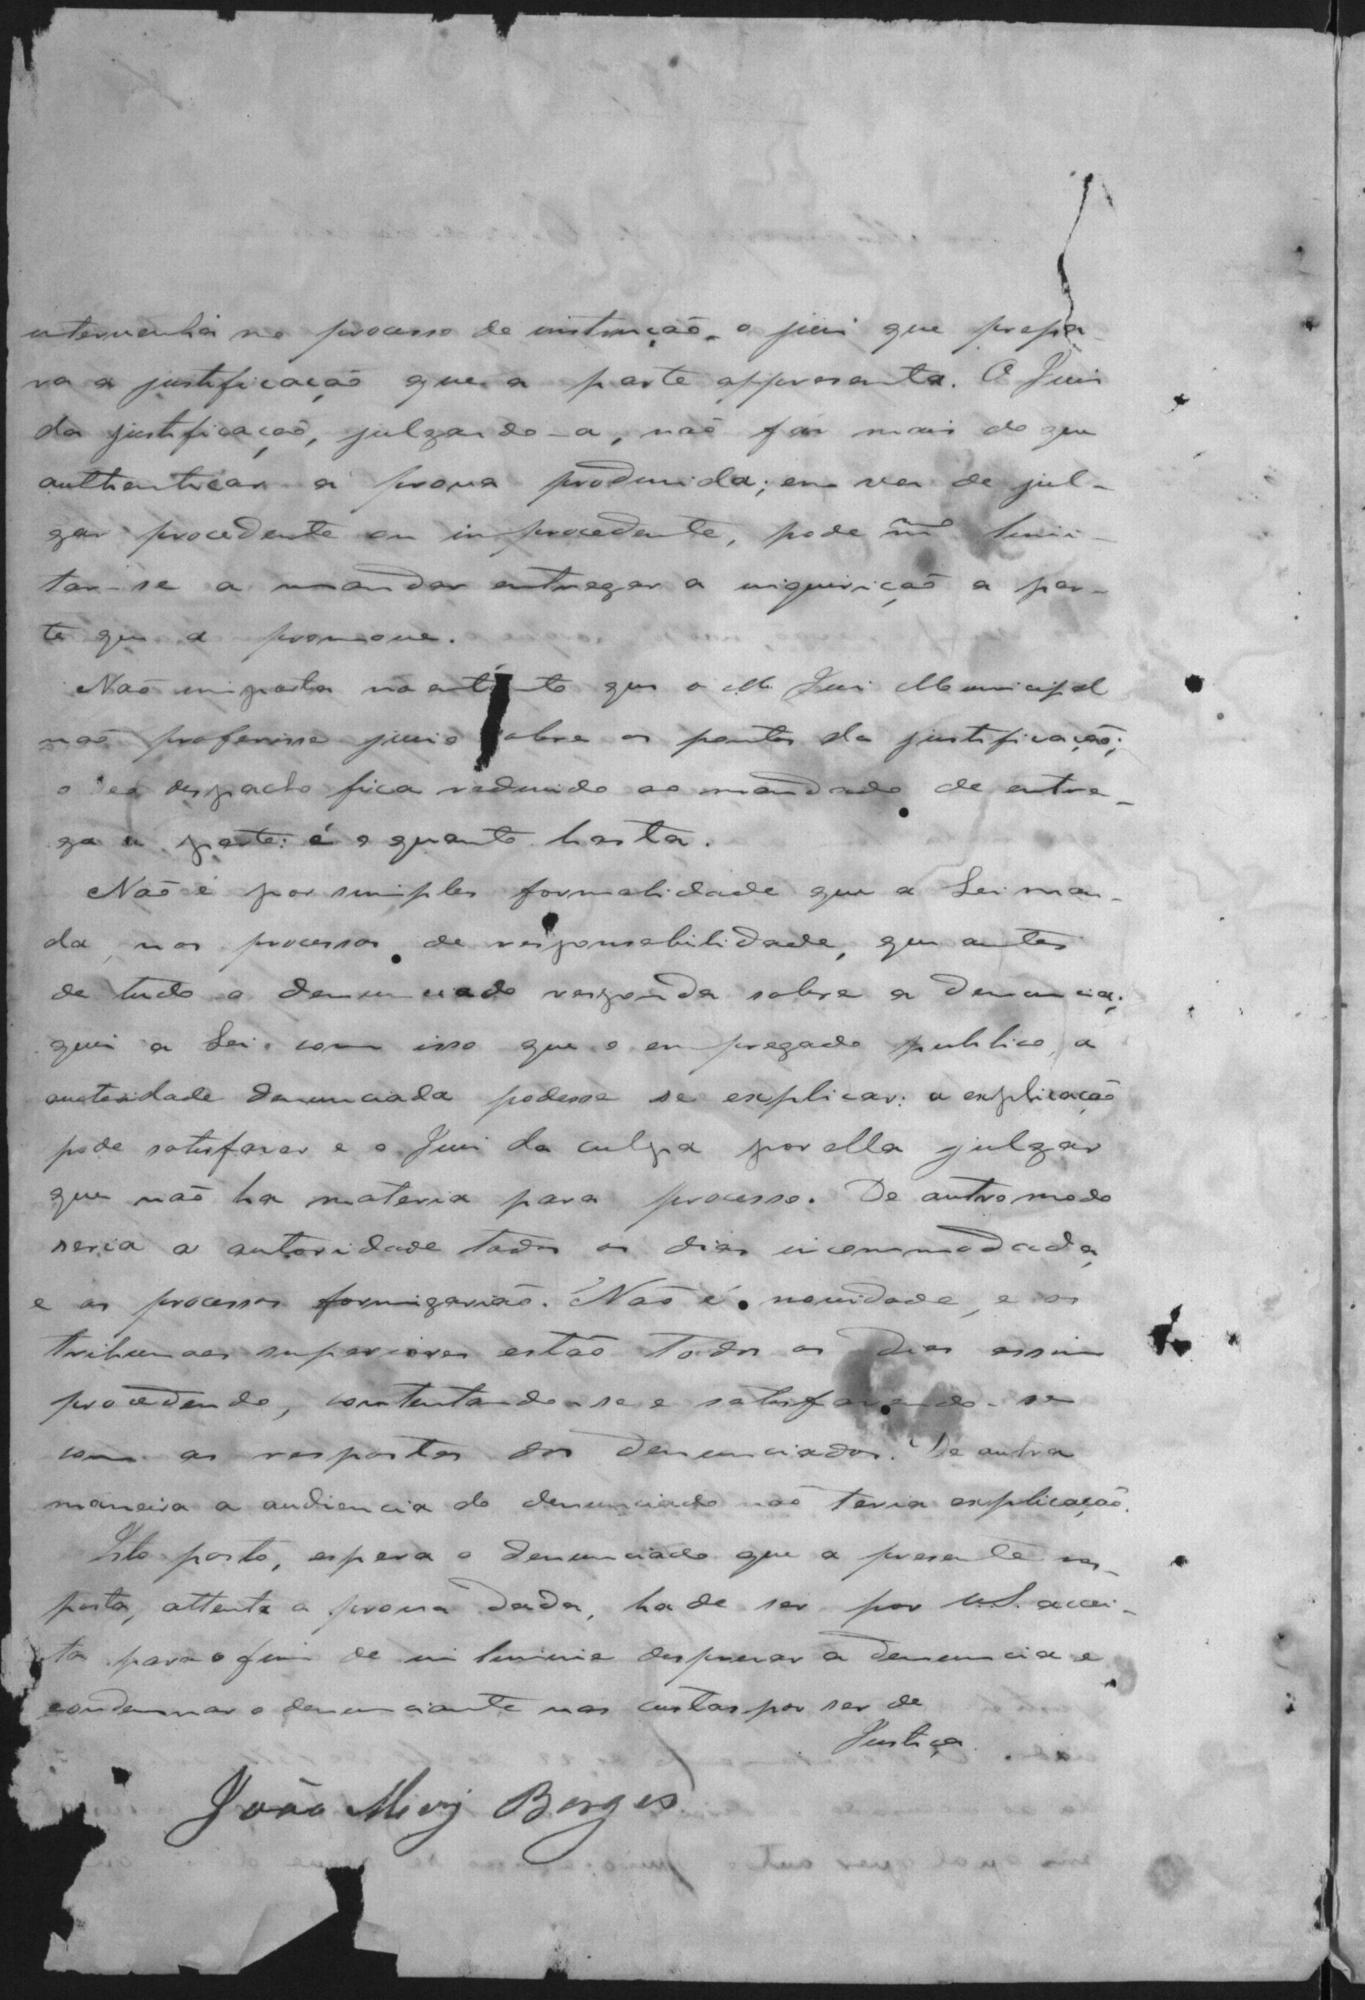 intervenha no processo de instrucção. o juiz que prepa-
ra a justificação que a parte appresenta. O Juiz
da justificação, julgando-a, não faz mais do que
authenticar a prova produzida; em vez de jul-
gar procedente ou improcedente, pode limi-
tar-se a mandar entregar a inquirição a par-
te que a promove.
Não importa no entanto que o M. Juiz Municipal
não proferisse juizo sobre os pontos da justificação;
o seu despacho fica reduzido ao mandado de entre-
ga a parte: é o quanto basta.
Não é por simples formalidade que a Lei man-
da, nos processos de responsabilidade, que antes
de tudo o denunciado responda sobre a denuncia;
quiz a Lei com isso que o empregado publico, a
autoridade denunciada podesse se explicar: a explicação
pode satisfazer e o Juiz da culpa por ella julgar
que não ha materia para processo. De outro modo
seria a autoridade todos os dias incommodada,
e os processos formigarião. Não é novidade, e os
tribunaes superiores estão todos os dias assim
procedendo, contentando-se e satisfazendo-se
com as respostas dos denunciados. De outra
maneira a audiencia do denunciado não teria explicação.
Isto posto, espera o denunciado que a presente res-
posta, attenta a prova dada, ha de ser por V.S. accei-
ta para o fim de in limine desprezar a denuncia e
condemnar o denunciante nas custas por ser de
Justiça.
João Borges